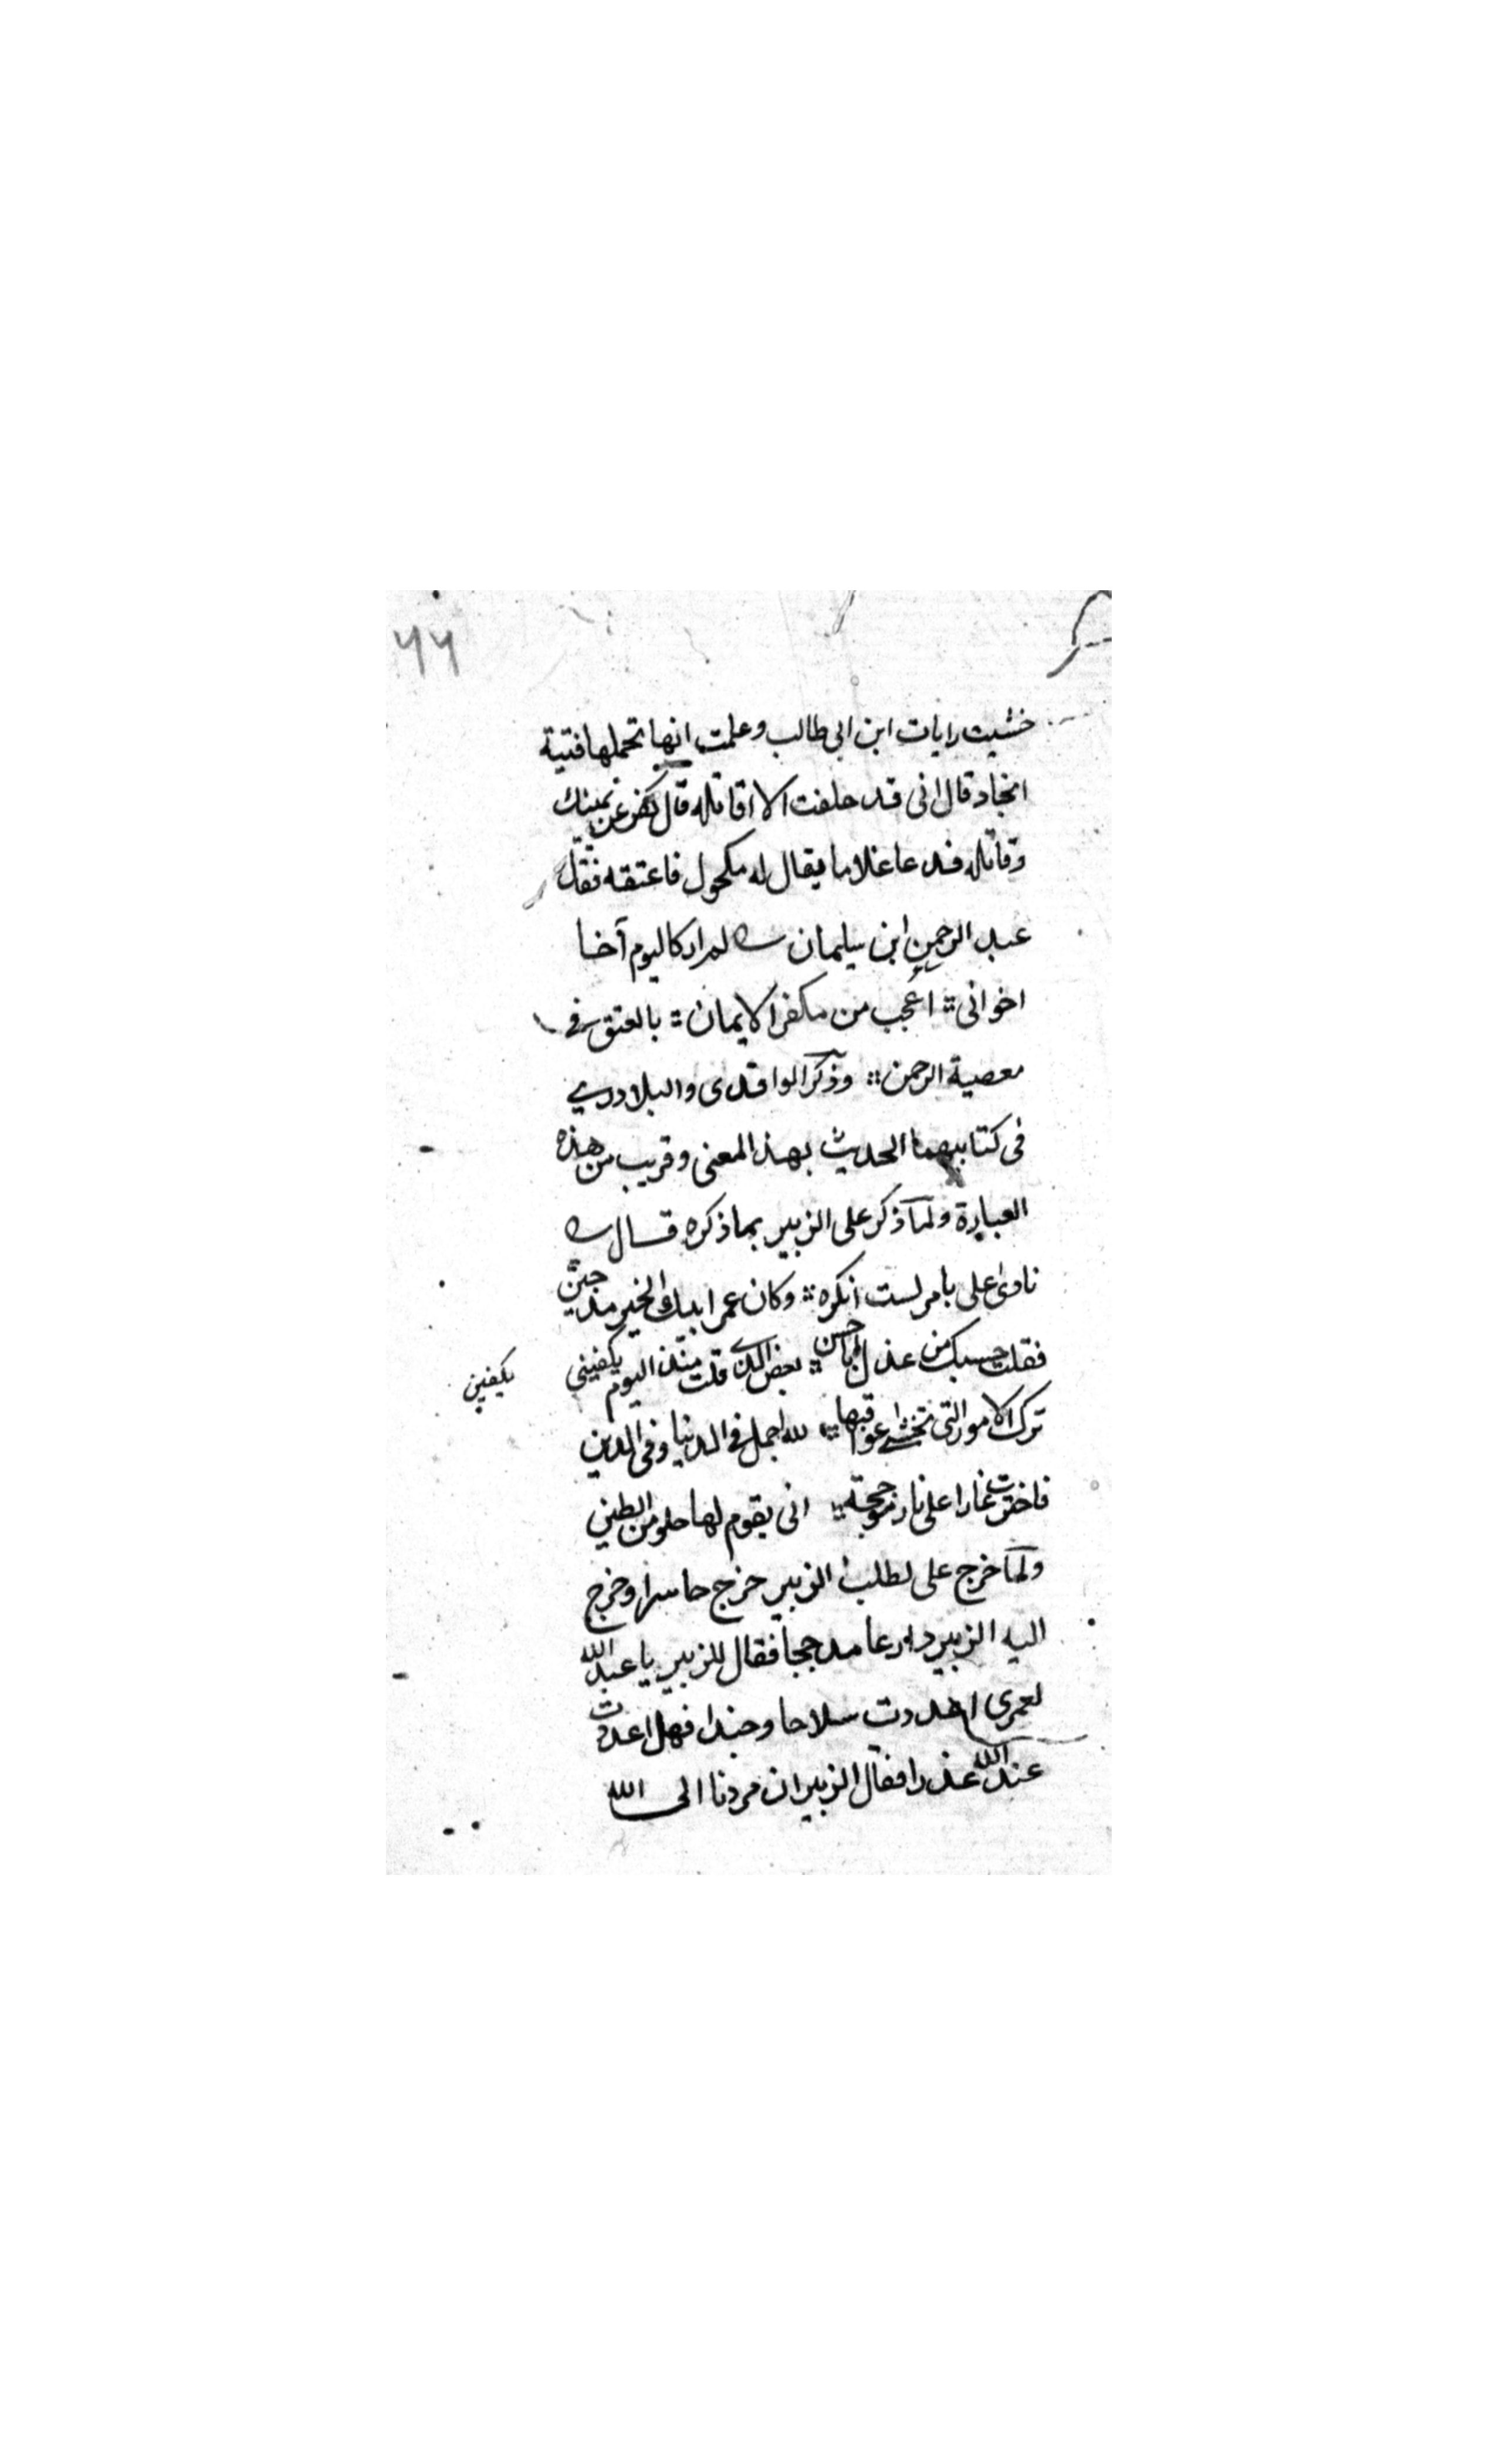 ٦٦
خشيت رايات ابن ابي طالب وعلمت انها تحملها فتية
انجاد قال انى قد حلفت الا اقاتله قال كفر عن يمينك
وقاتله فدعا غلاما يقال له مكحول فاعتقه فقال
عبد الرحمن ابن سليمان لم ار كاليوم آخا
اخوانى اعجب من مكفر الايمان بالعتق في
معصية الرحمن وذكر الواقدى والبلاددي
فى كتابيهما الحديث بهذ المعنى وقريب من هذه
العبارة ولمآ ذكر على الزبير بما ذكره قال
نادى على بامر لست انكره وكان عمر ابيك الخير مذ حين
فقلت حسبك من عذل ابا حسن بعض الذي قلت منذ اليوم يكفيني
يكفيني
ترك الامور التى تخشى عواقبها لله اجمل في الدنيا وفى الدين
فاخترت عارا على نار موججة انى يقوم لها خلو من الطين
ولمآ خرج على لطلب الزبير خرج حاسرا وخرج
اليه الزبير دارعا مدججا فقال للزبير يا عبد الله
لعمرى اعددت سلاحا وجندا فهل اعددت
عند الله عذرا فقال الزبير ان مردنا الى الله